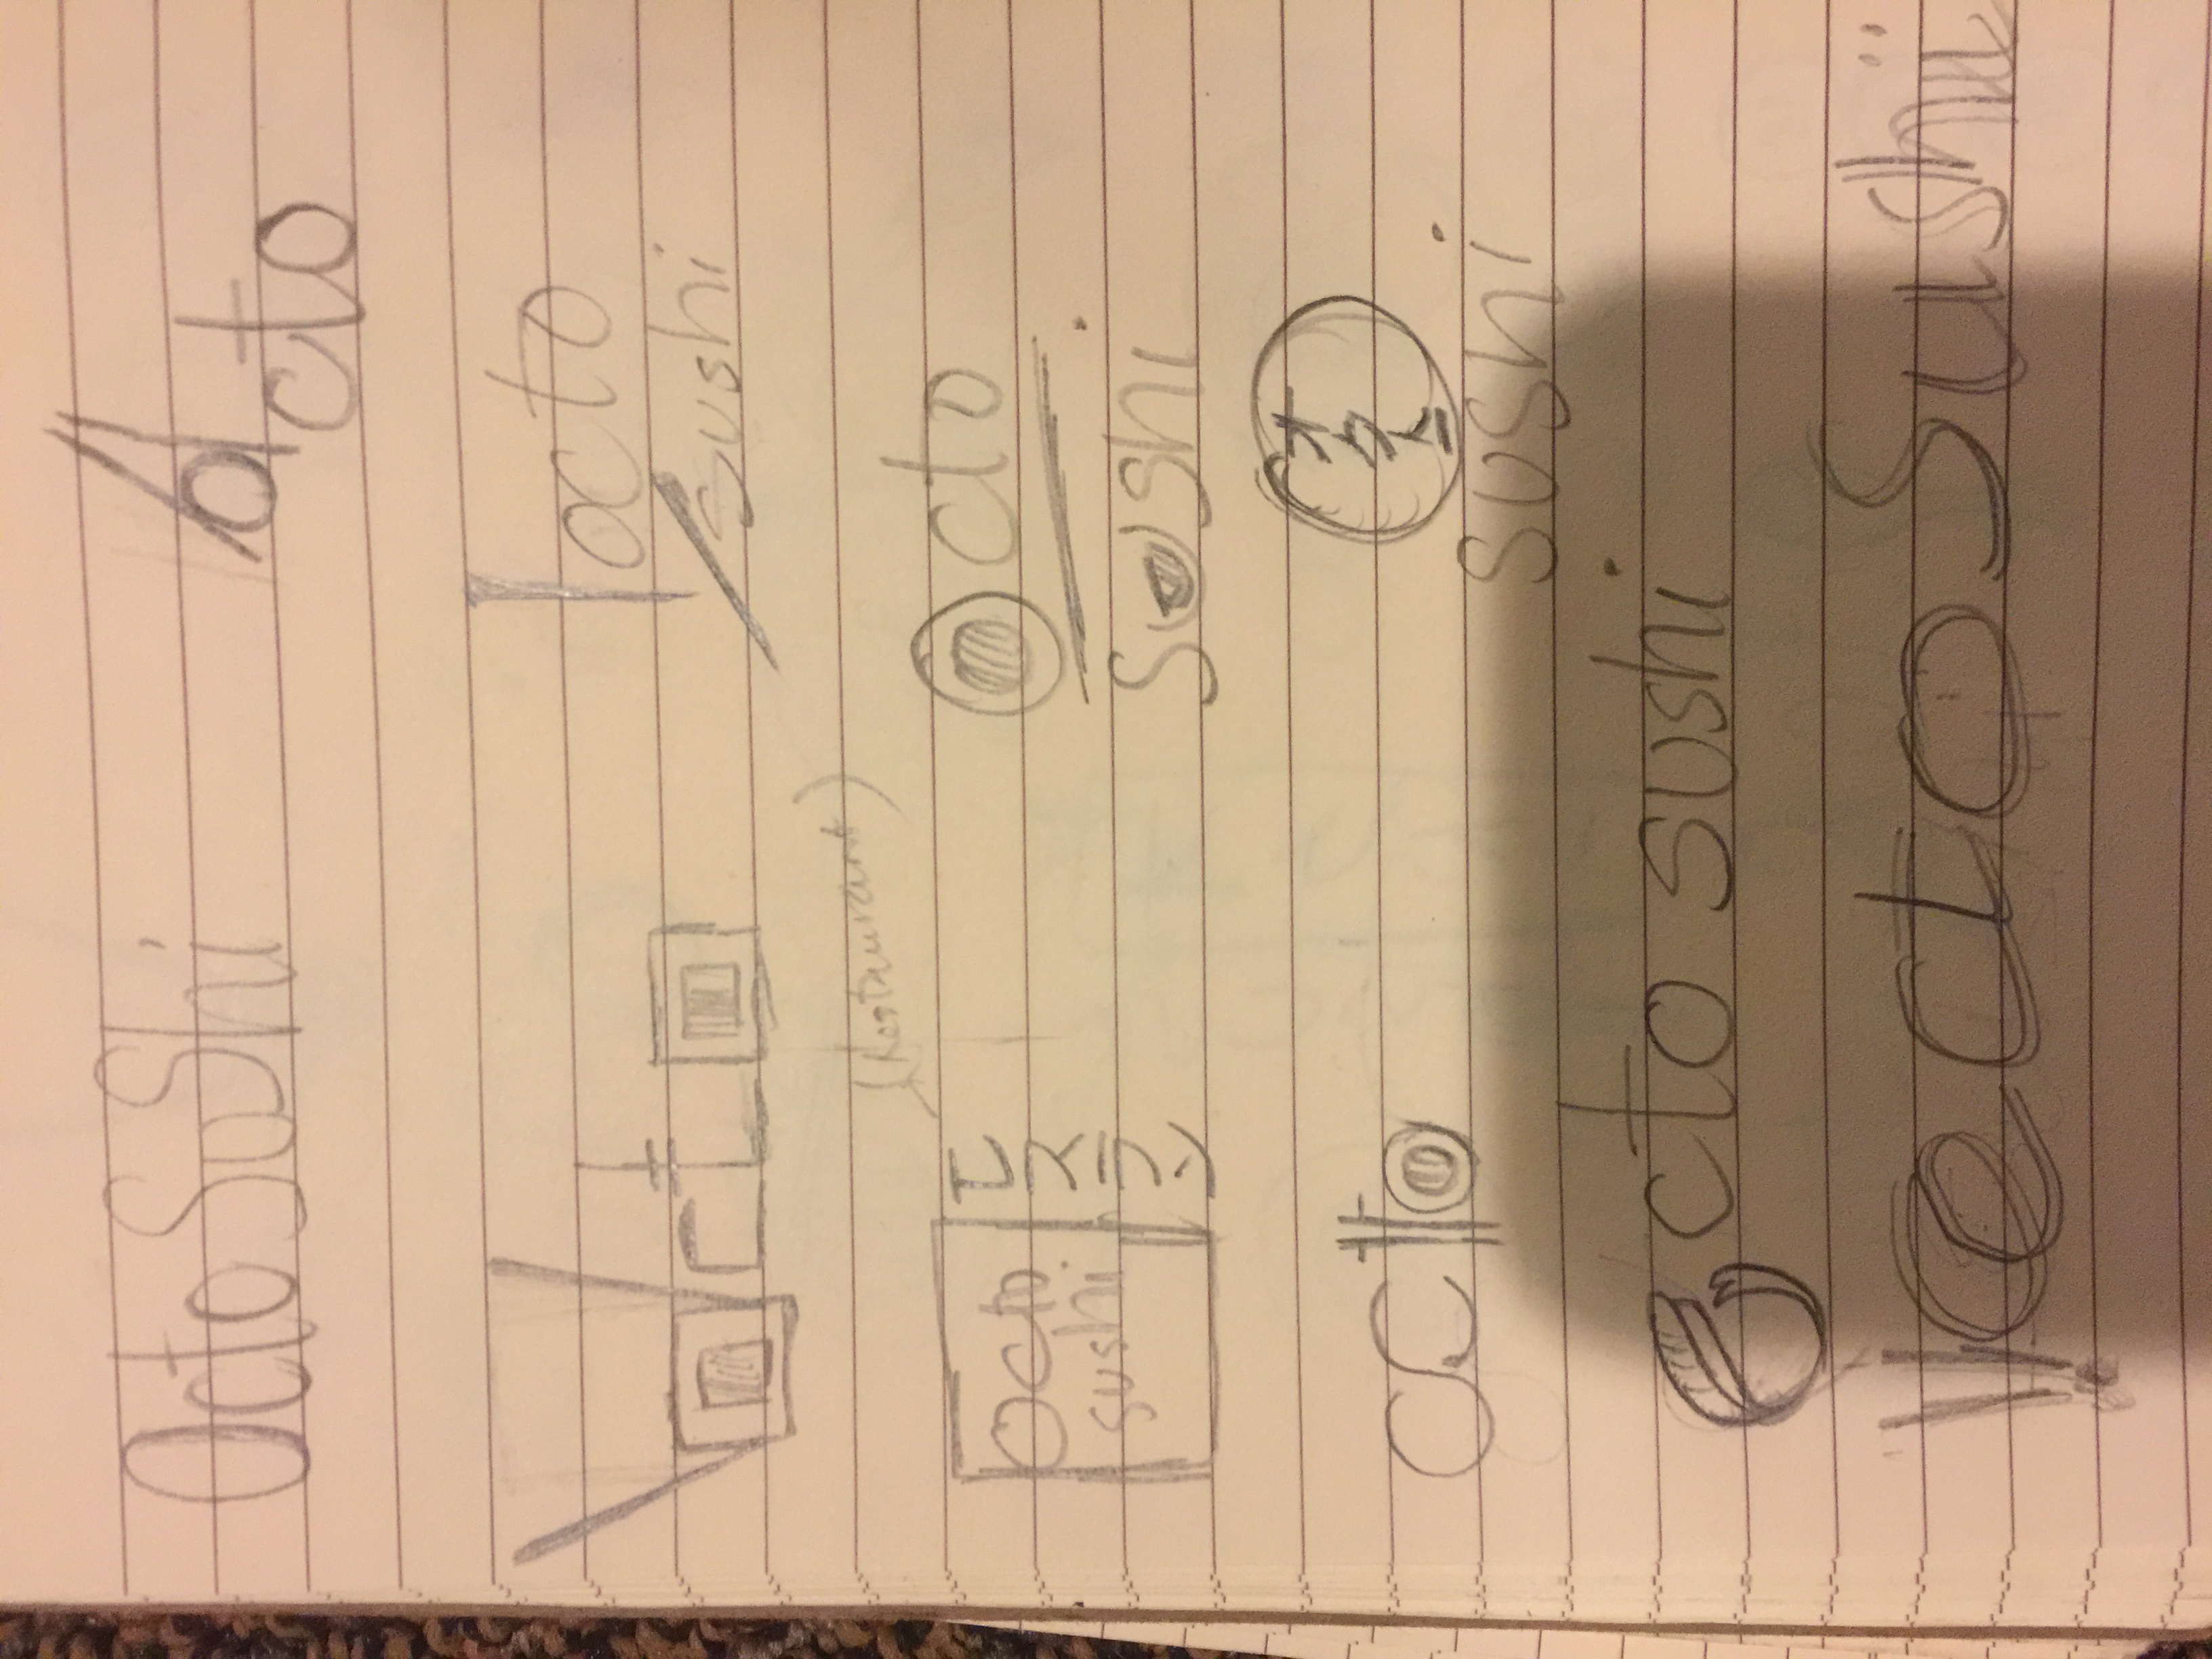 Octo SuShi
Octo
octo
octo
sushi
(Restaurant)
octo
sushi
レ
ス
ラ
ン
Octo
sushi
octo
オ
ク
ト
sushi
octo sushi
octo Sushi